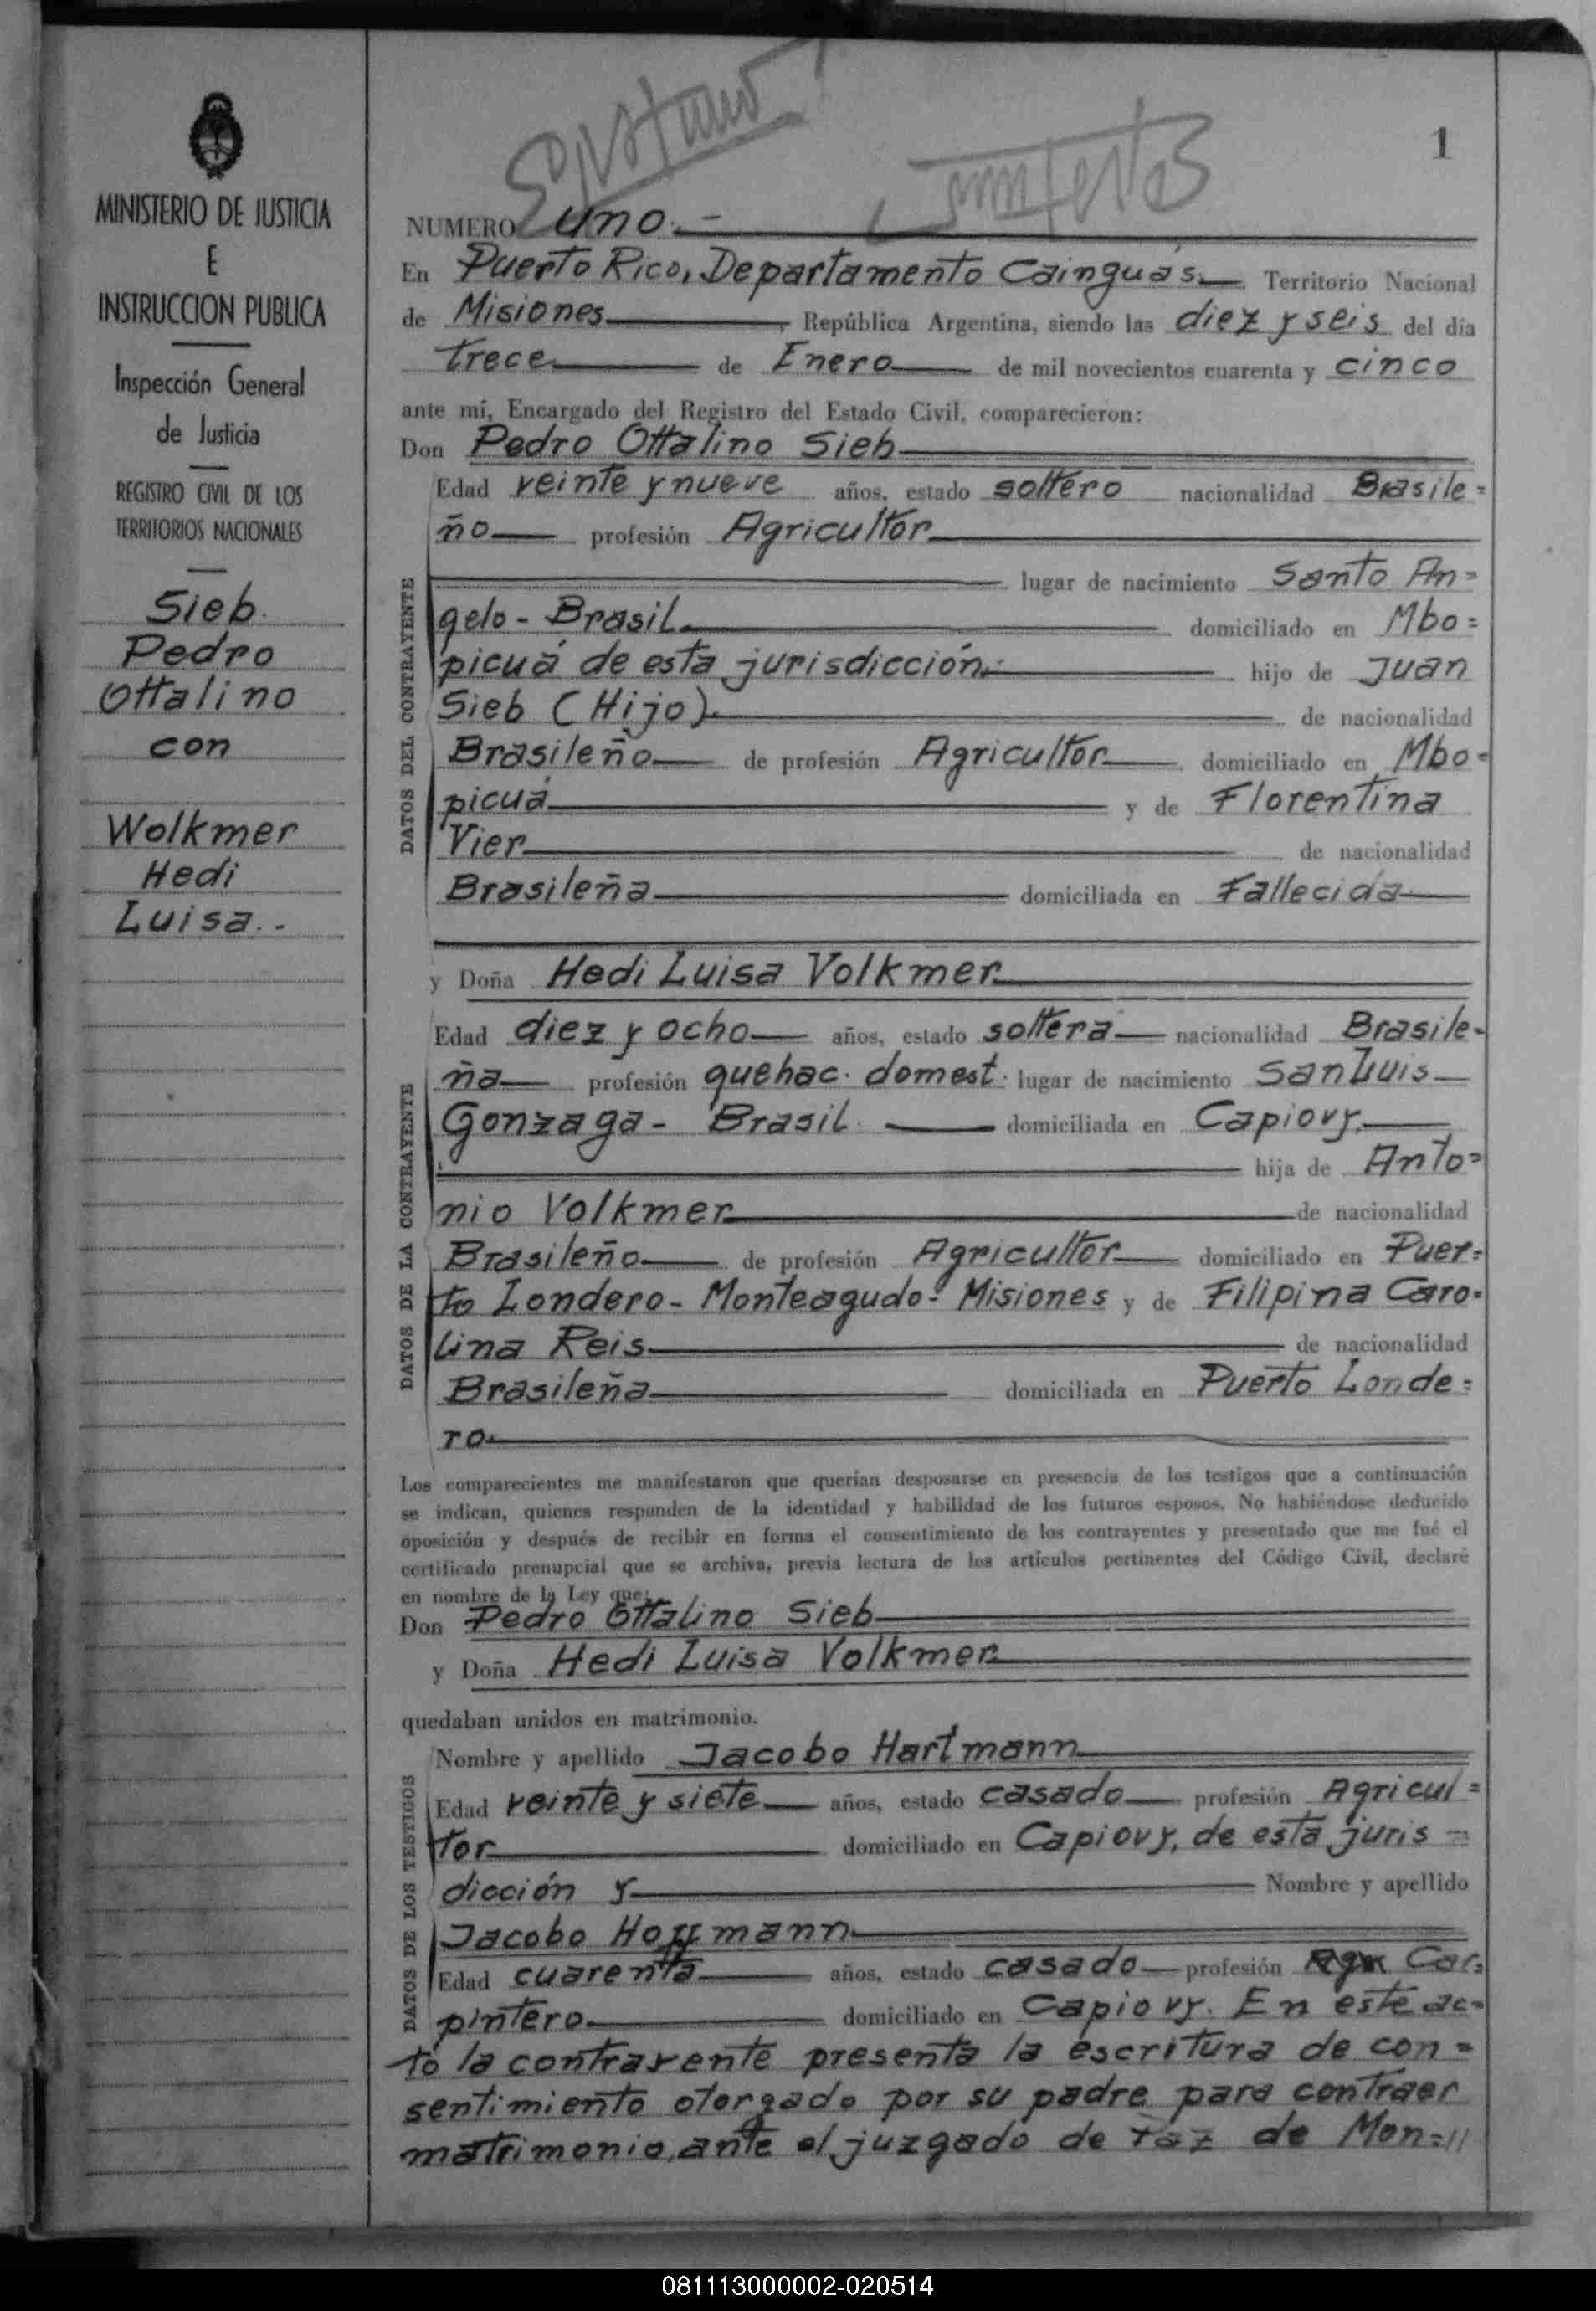 MINISTERIO DE JUSTICIA
E
INSTRUCCION PUBLICA
Inspección General
de Justicia
REGISTRO CIVIL DE LOS
TERRITORIOS NACIONALES
Sieb.
Pedro
Ottalino
con
Wolkmer
Hedi
Luisa.-
1
NUMERO uno.-
En Puerto Rico, Departamento Cainguás. Territorio Nacional
de Misiones, República Argentina, siendo las diez y seis del día
trece de Enero de mil novecientos cuarenta y cinco
ante mí, Encargado del Registro del Estado Civil, comparecieron:
Don Pedro Ottalino Sieb
Edad veinte y nueve años, estado soltero nacionalidad Brasile=
ño profesión Agricultor
lugar de nacimiento Santo An=
gelo - Brasil. domiciliado en Mbo=
picuá de esta jurisdicción. hijo de Juan
Sieb (Hijo). de nacionalidad
Brasileño de profesión Agricultor domiciliado en Mbo-
picuá y de Florentina
Vier de nacionalidad
Brasileña domiciliada en Fallecida
DATOS DEL CONTRAYENTE
y Doña Hedi Luisa Volkmer
Edad diez y ocho años, estado soltera nacionalidad Brasile-
ña profesión quehac. domest. lugar de nacimiento San Luis
Gonzaga - Brasil. domiciliada en Capiovy.
hija de Anto=
nio Volkmer de nacionalidad
Brasileño de profesión Agricultor domiciliado en Puer=
to Londero - Monteagudo - Misiones y de Filipina Caro-
lina Reis de nacionalidad
Brasileña domiciliada en Puerto Londe=
ro.
DATOS DE LA CONTRAYENTE
Los comparecientes me manifestaron que querían desposarse en presencia de los testigos que a continuación
se indican, quienes responden de la identidad y habilidad de los futuros esposos. No habiéndose deducido
oposición y después de recibir en forma el consentimiento de los contrayentes y presentado que me fué el
certificado prenupcial que se archiva, previa lectura de los artículos pertinentes del Código Civil, declaré
en nombre de la Ley que:
Don Pedro Ottalino Sieb
y Doña Hedi Luisa Volkmer
quedaban unidos en matrimonio.
Nombre y apellido Jacobo Hartmann
Edad veinte y siete años, estado casado profesión Agricul=
tor domiciliado en Capiovy, de esta juris=
dicción y Nombre y apellido
Jacobo Hoffmann
Edad cuarenta años, estado casado profesión Car=
pintero. domiciliado en Capiovy. En este ac-
DATOS DE LOS TESTIGOS
to la contrayente presenta la escritura de con=
sentimiento otorgado por su padre para contraer
matrimonio, ante el juzgado de Paz de Mon=//
081113000002-020514